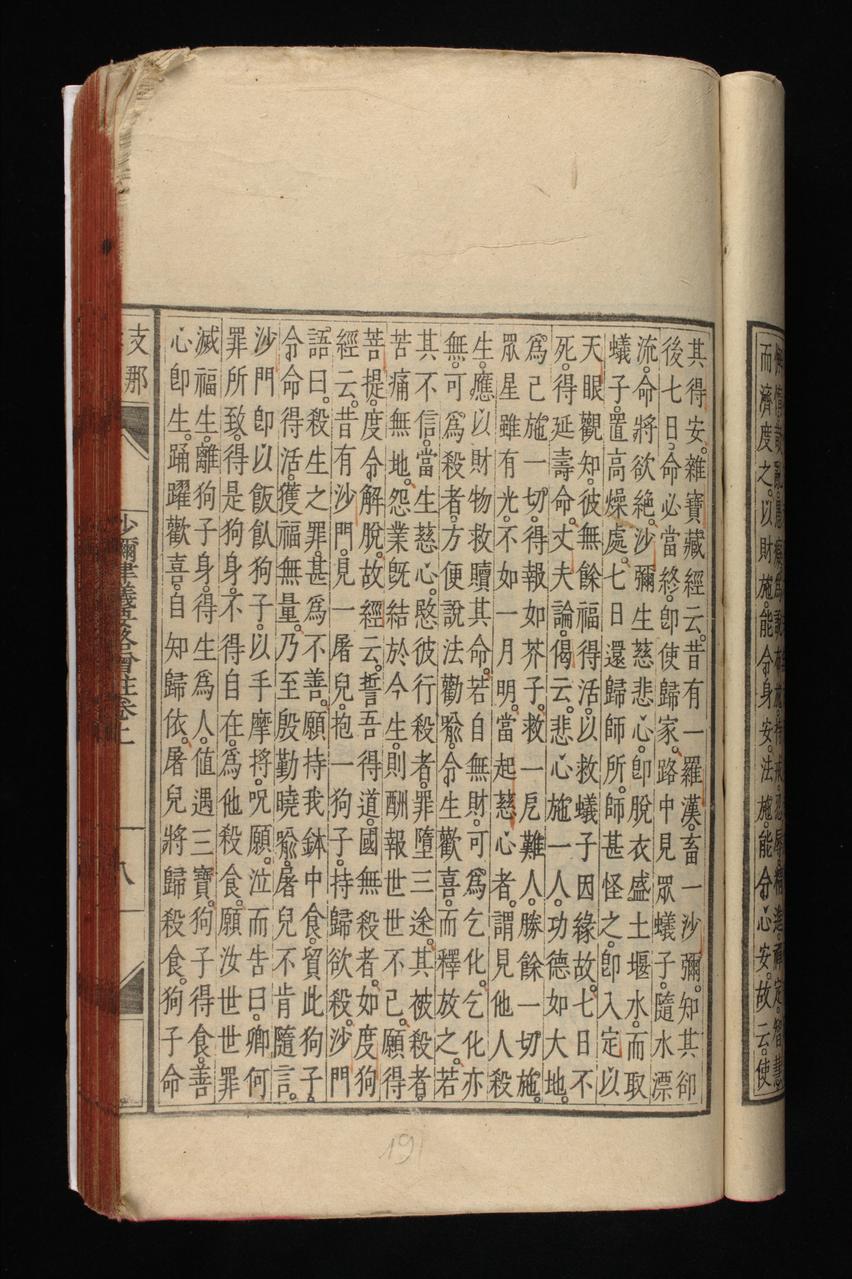 而濟度之。以財施。能令身安。法施。能令心安。故云。使
其得安。雜寶藏經云。昔有一羅漢。畜一沙彌。知其卻
後七日。命必當終。即使歸家。路中見眾蟻子。隨水漂
流。命將欲絕。沙彌生慈悲心。即脫衣盛土堰水。而取
蟻子。置高燥處。七日還歸師所。師甚怪之。即入定以
天眼觀知。彼無餘福得活。以救蟻子因緣故。七日不
死。得延壽命。丈夫論。偈云。悲心施一人。功德如大地。
為己施一切。得報如芥子。救一厄難人。勝餘一切施。
眾星雖有光。不如一月明。當起慈心者。謂見他人殺
生。應以財物救贖其命。若自無財。可為乞化。乞化亦
無。可為殺者。方便說法勸喻。令生歡喜。而釋放之。若
其不信。當生慈心。愍彼行殺者。罪墮三途。其被殺者。
苦痛無地。怨業既結於今生。則酬報世世不已。願得
菩提。度令解脫。故經云。誓吾得道。國無殺者。如度狗
經云。昔有沙門。見一屠兒。抱一狗子。持歸欲殺。沙門
語曰。殺生之罪。甚為不善。願持我鉢中食。貿此狗子。
令命得活。獲福無量。乃至殷勤曉喻。屠兒不肯隨言。
沙門即以飯飤狗子。以手摩捋。呪願。泣而告曰。卿何
罪所致。得是狗身。不得自在。為他殺食。願汝世世罪
滅福生。離狗子身。得生為人。值遇三寶。狗子得食。善
心即生。踊躍歡喜。自知歸依。屠兒將歸殺食。狗子命
支那
沙彌律儀要略會註卷上
八
191